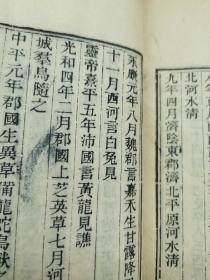 北河水清
九年四月濟陰東郡濟北平原河水清
永康元年八月魏郡言嘉禾生甘露降
十一月西河言白兔見
靈帝熹平五年沛國言黃龍見譙
光和四年二月郡國上芝英草七月河
城羣鳥隨之
中平元年郡國生異草備龍蛇鳥獸